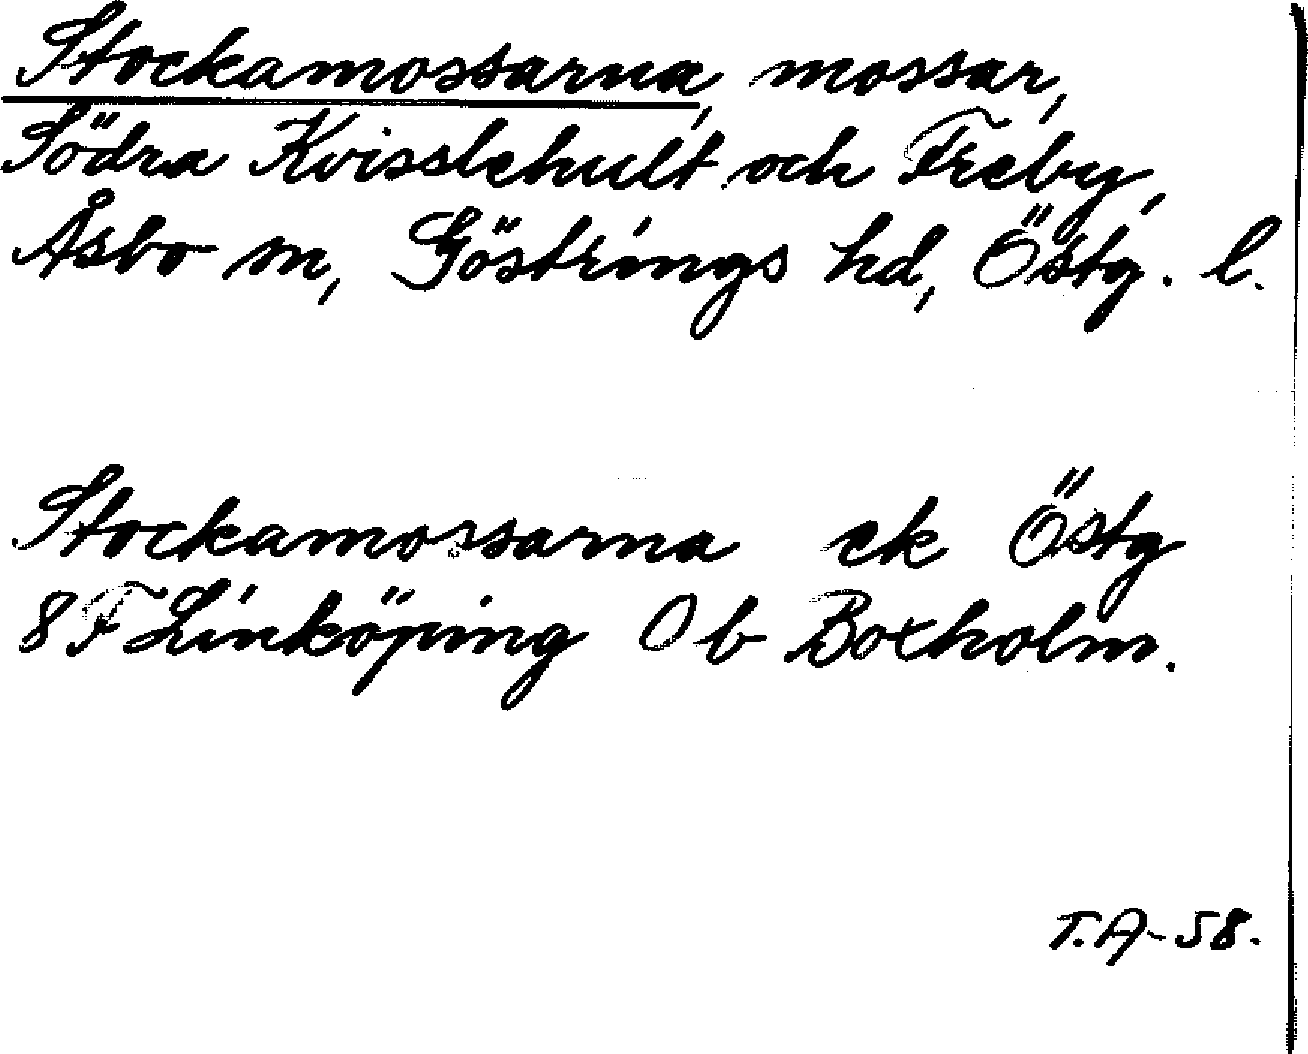 Stockamossarna, mossar,
Södra Kvisslehult och Freby,
Åsbo sn, Göstrings hd, Östg. l.
Stockamossarna ek Östg
8 F Linköping O b Boxholm.
T.A-58.